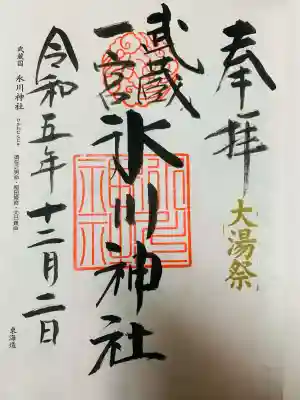 奉拝
大湯祭
武蔵
一宮
氷川神社
令和五年十二月二日
武蔵国 氷川神社
東海道